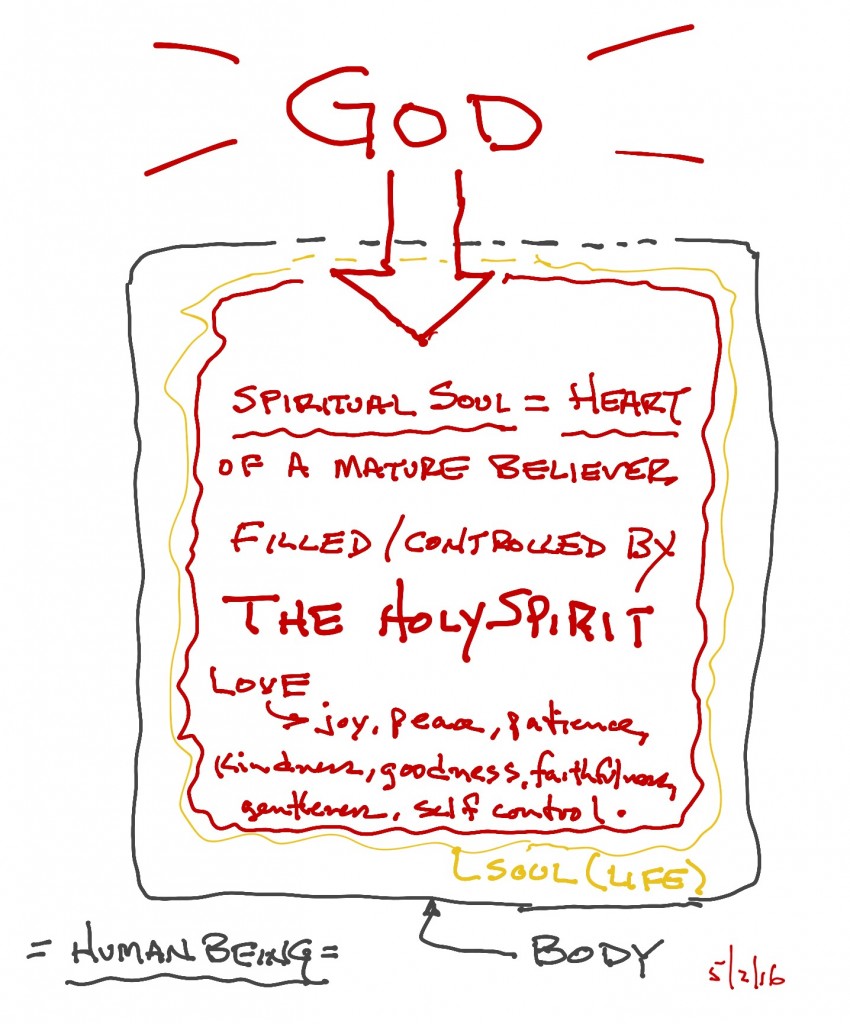 GOD
SPIRITUAL SOUL = HEART
OF A MATURE BELIEVER
FILLED/CONTROLLED BY
THE HOLY SPIRIT
LOVE
joy, peace, patience,
kindness, goodness, faithfulness,
gentleness, self control.
SOUL (LIFE)
= HUMAN BEING =
BODY
5/2/16